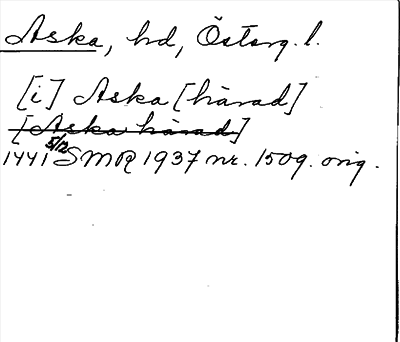 Aska, hd, Österg. l.
[i] Aska [härad]
[Aska härad]
1441 5/12 SMR 1937 nr. 1509. orig.